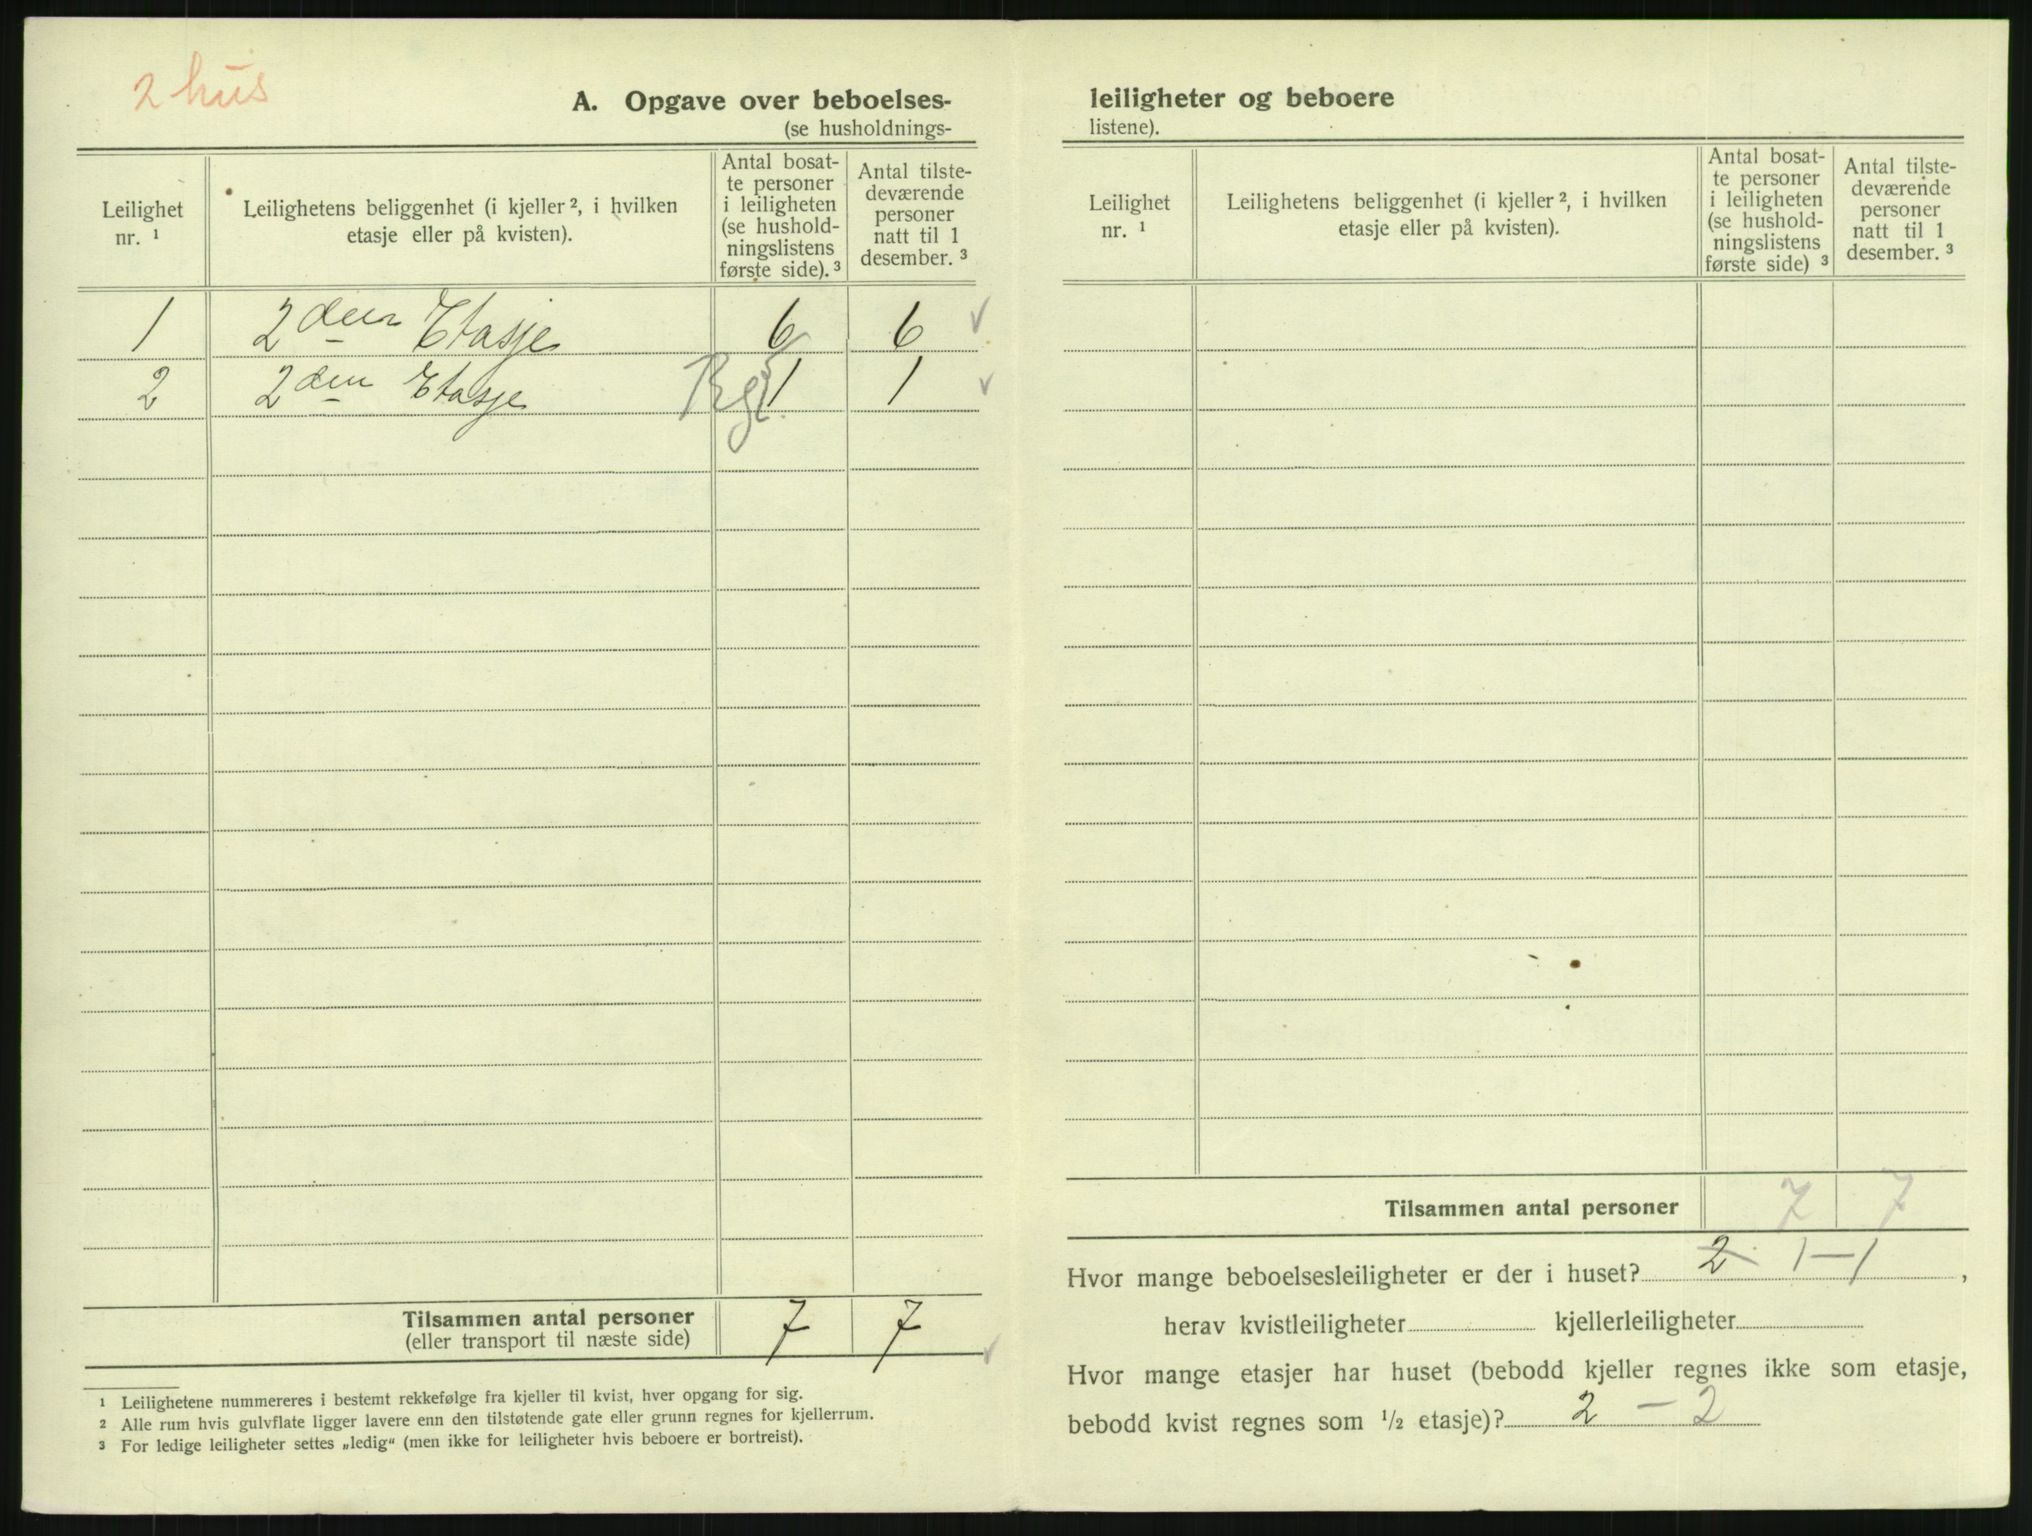 2 hus
A. Opgave over beboelses-
(se husholdnings-
Leilighet nr. ¹
Leilighetens beliggenhet (i kjeller ², i hvilken etasje eller på kvisten).
Antal bosat-
te personer
i leiligheten
(se hushold-
ningslistens
første side). ³
Antal tilste-
deværende
personer
natt til 1
desember. ³
1 2den Etasje 6 6
2 2den Etasje 1 1
Tilsammen antal personer 7 7
(eller transport til næste side)
¹ Leilighetene nummereres i bestemt rekkefølge fra kjeller til kvist, hver opgang for sig.
² Alle rum hvis gulvflate ligger lavere enn den tilstøtende gate eller grunn regnes for kjellerrum.
³ For ledige leiligheter settes „ledig“ (men ikke for leiligheter hvis beboere er bortreist).
leiligheter og beboere
listene).
Leilighet nr. ¹
Leilighetens beliggenhet (i kjeller ², i hvilken etasje eller på kvisten).
Antal bosat-
te personer
i leiligheten
(se hushold-
ningslistens
første side) ³
Antal tilste-
deværende
personer
natt til 1
desember. ³
Tilsammen antal personer 7 7
Hvor mange beboelsesleiligheter er der i huset? 2 1 – 1,
herav kvistleiligheter kjellerleiligheter
Hvor mange etasjer har huset (bebodd kjeller regnes ikke som etasje,
bebodd kvist regnes som ½ etasje)? 2 – 2